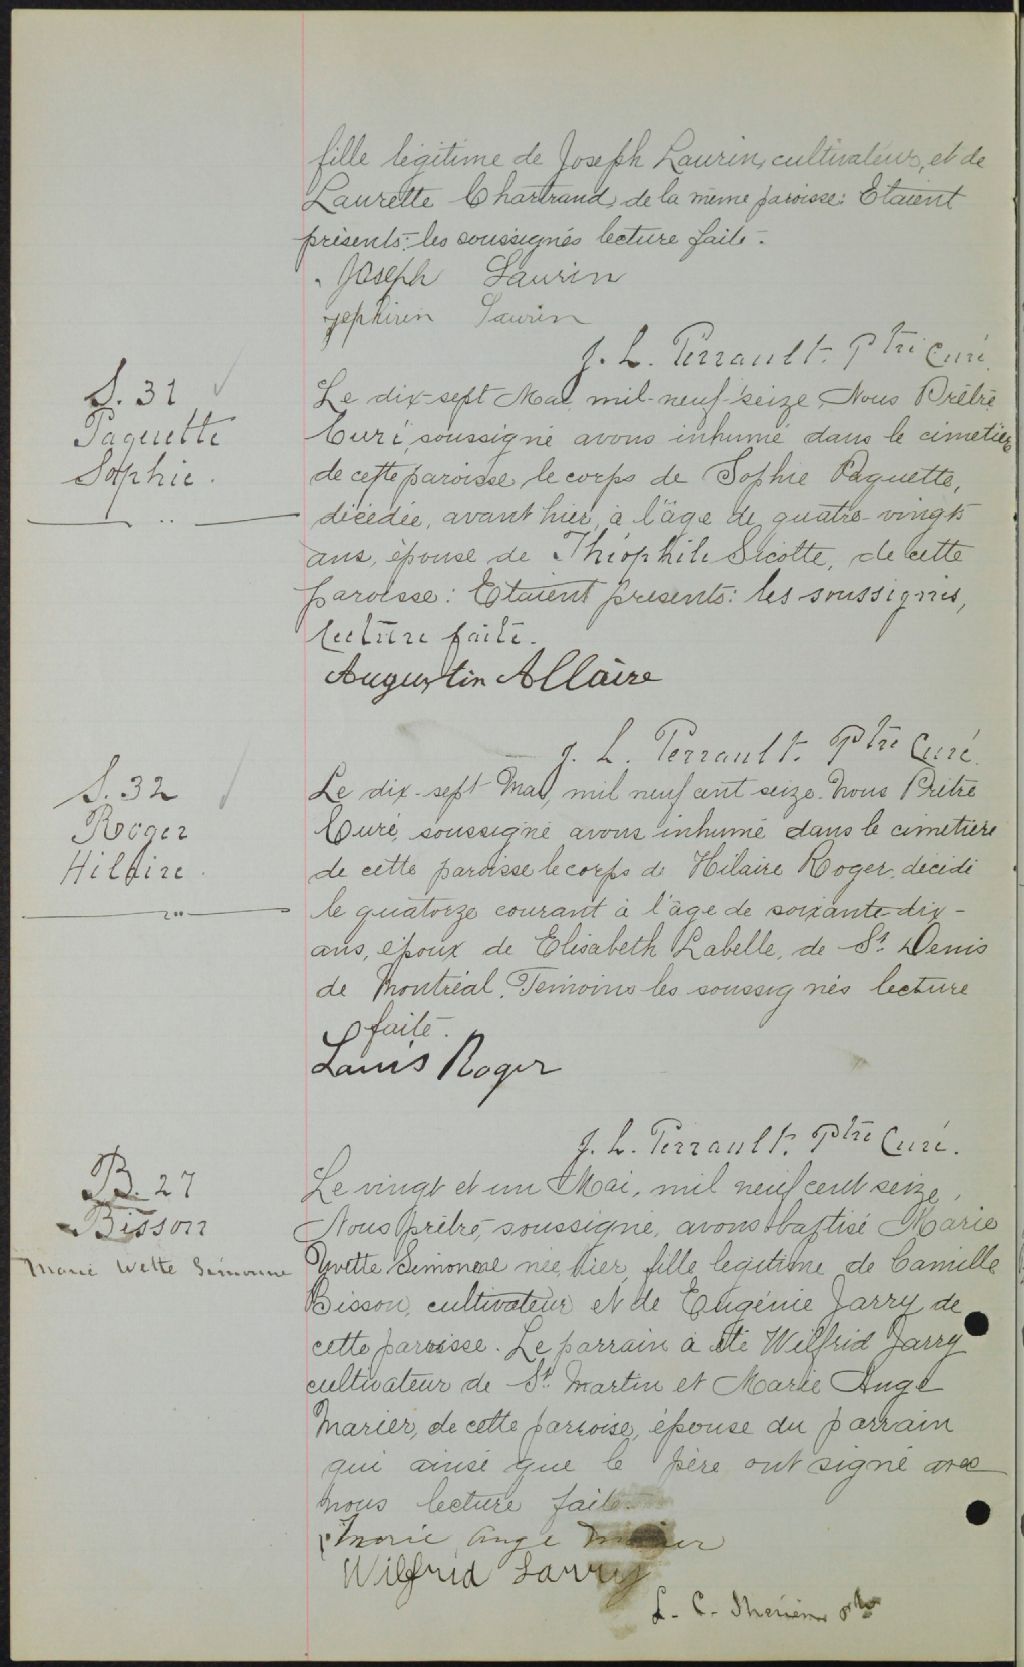 fille légitime de Joseph Laurin, cultivateur, et de
Laurette Chartrand, de la même paroisse: Etaient
présents: les soussignés lecture faite.
Joseph Laurin
Zephirin Laurin
J. L. Perrault. Ptre Curé.
S. 31
Paquette
Sophie.
Le dix-sept Mai mil-neuf-seize, Nous Prêtre
Curé, soussigné avons inhumé dans le cimetière
de cette paroisse le corps de Sophie Paquette,
décédée, avant hier, à l'âge de quatre-vingts
ans, épouse de Théophile Sicotte, de cette
paroisse: Etaient présents: les soussignés,
lecture faite.
Augustin Allaire
J. L. Perrault. Ptre Curé.
S. 32
Roger
Hilaire.
Le dix-sept Mai, mil neuf cent seize. Nous Prêtre
Curé, soussigné avons inhumé dans le cimetière
de cette paroisse le corps de Hilaire Roger, décédé
le quatorze courant à l'âge de soixante-dix-
ans, époux de Elisabeth Labelle, de St. Denis
de Montréal. Témoins les soussignés lecture
faite.
Louis Roger
J. L. Perrault. Ptre Curé.
B. 27
Bisson
Marie Yvette Simonne
Le vingt et un Mai, mil neuf cent seize,
Nous prêtre, soussigné, avons baptisé Marie
Yvette Simonne née hier, fille légitime de Camille
Bisson, cultivateur et de Eugénie Jarry de
cette paroisse. Le parrain a été Wilfrid Jarry
cultivateur de St. Martin et Marie Ange
Marier, de cette paroise, épouse du parrain
qui ainsi que le père ont signé avec
nous lecture faite.
Marie Ange Marier
Wilfrid Jarry
L. C.